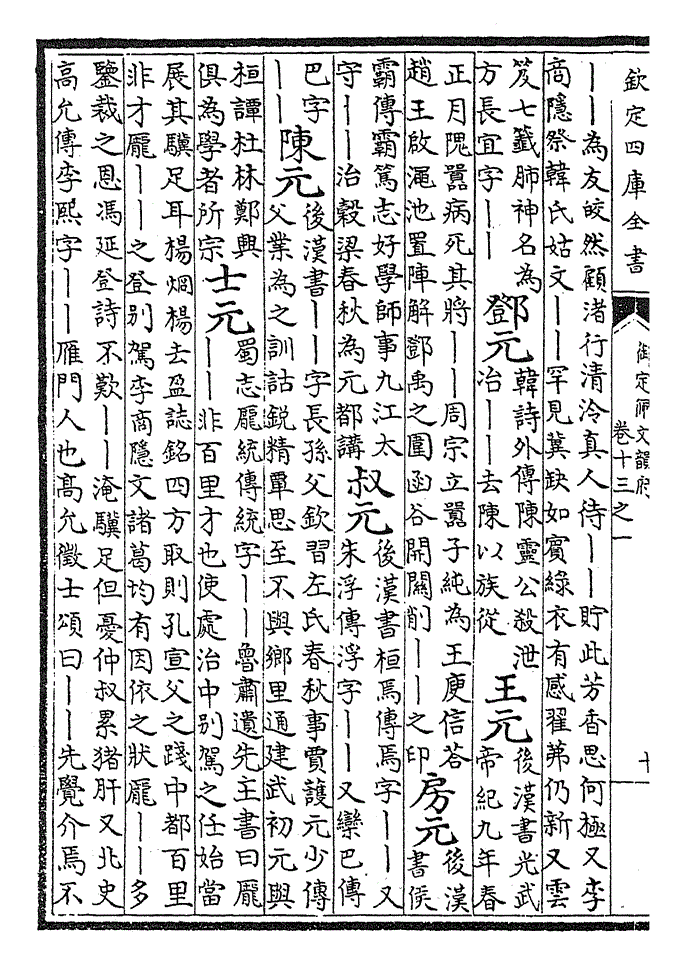 欽定四庫全書
御定佩文韻府
卷十三之一
｜｜為友皎然顧渚行清泠真人待｜｜貯此芳香思何極又李
商隱祭韓氏姑文｜｜罕見冀缺如賓綠衣有感翟茀仍新又雲
笈七籤肺神名為
方長宜字｜｜
鄧元
韓詩外傳陳靈公殺泄
冶｜｜去陳以族從
王元
後漢書光武
帝紀九年春
正月隗囂病死其將｜｜周宗立囂子純為王庾信荅
趙王啟澠池置陣解鄧禹之圍函谷開關削｜｜之印
房元
後漢
書侯
霸傳霸篤志好學師事九江太
守｜｜治穀梁春秋為元都講
叔元
後漢書桓焉傳焉字｜｜又
朱浮傳浮字｜｜又欒巴傳
巴字
｜｜
陳元
後漢書｜｜字長孫父欽習左氏春秋事賈護元少傳
父業為之訓詁銳精覃思至不與鄉里通建武初元與
桓譚杜林鄭興
俱為學者所宗
士元
蜀志龎統傳統字｜｜魯肅遺先主書曰龎
｜｜非百里才也使處治中别駕之任始當
展其驥足耳楊烱楊去盈誌銘四方取則孔宣父之踐中都百里
非才龎｜｜之登别駕李商隱文諸葛均有因依之狀龎｜｜多
鑒裁之恩馮延登詩不歎｜｜淹驥足但憂仲叔累猪肝又北史
高允傳李熙字｜｜雁門人也高允徵士頌曰｜｜先覺介焉不